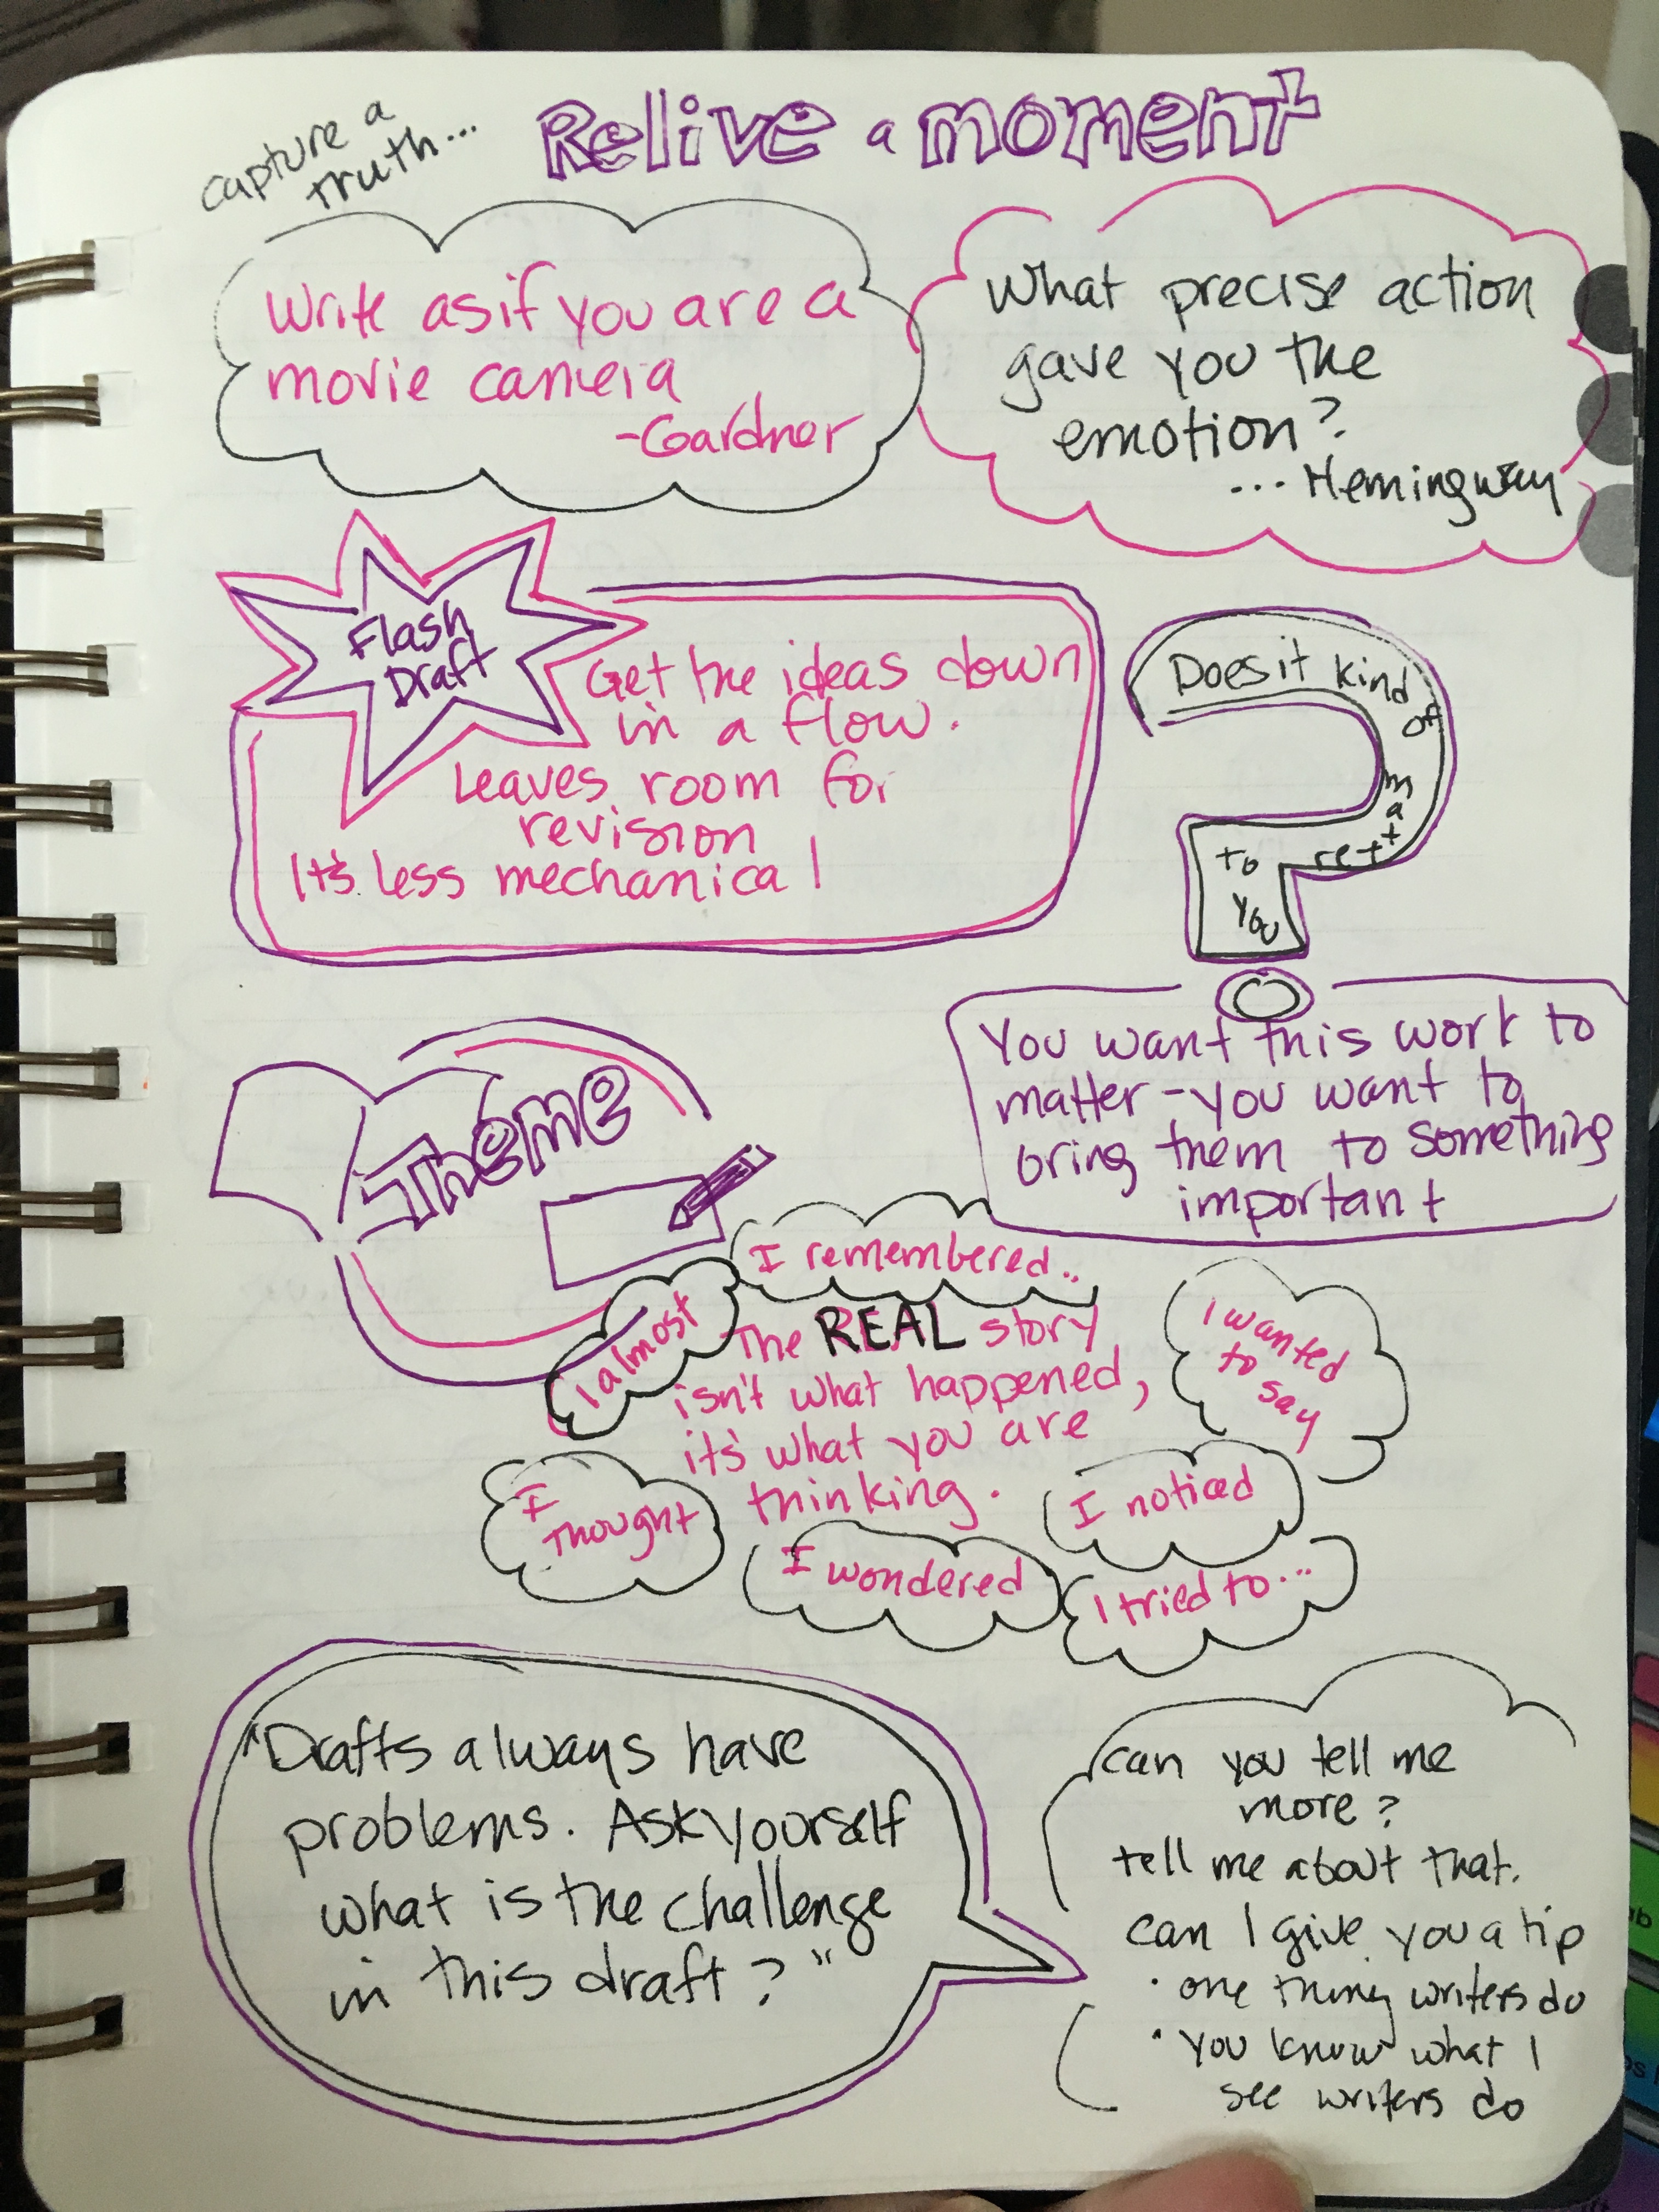 capture a
truth...
Relive a moment
Write as if you are a
movie camera
-Gardner
What precise action
gave you the
emotion?
... Hemingway
Flash
Draft
Get the ideas down
in a flow.
Leaves room for
revision
It's less mechanical
Does it kind
of
matter
to
you
You want this work to
matter - you want to
bring them to something
important
Theme
I remembered..
I almost
The REAL story
isn't what happened,
it's what you are
thinking.
I wanted
to
say
I
Thought
I noticed
I wondered
I tried to...
"Drafts always have
problems. Ask yourself
what is the challenge
in this draft?"
can you tell me
more?
tell me about that.
can I give you a tip
· one thing writers do
· you know what I
see writers do